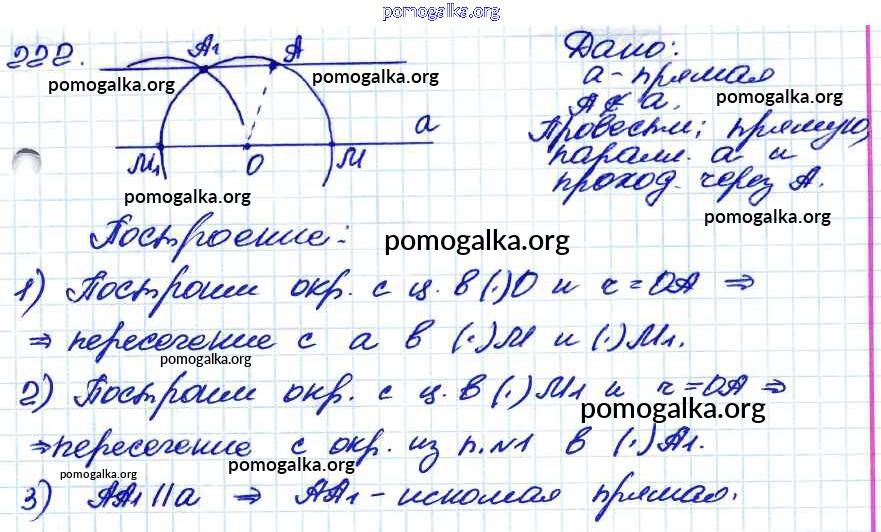 pomogalka.org
222.
A₁ A
pomogalka.org
pomogalka.org
a
M₁ O M
pomogalka.org
Дано:
a - прямая
A ∉ a.
pomogalka.org
Провести: прямую,
паралл. a и
проход. через A.
pomogalka.org
Построение:
pomogalka.org
1) Построим окр. с ц. в (·)O и r=OA ⇒
⇒ пересечение с a в (·)M и (·)M₁.
pomogalka.org
2) Построим окр. с ц. в (·)M₁ и r=OA ⇒
pomogalka.org
⇒пересечение с окр. из п.№1 в (·)A₁.
pomogalka.org
pomogalka.org
pomogalka.org
3) AA₁ || a ⇒ AA₁ - искомая прямая.